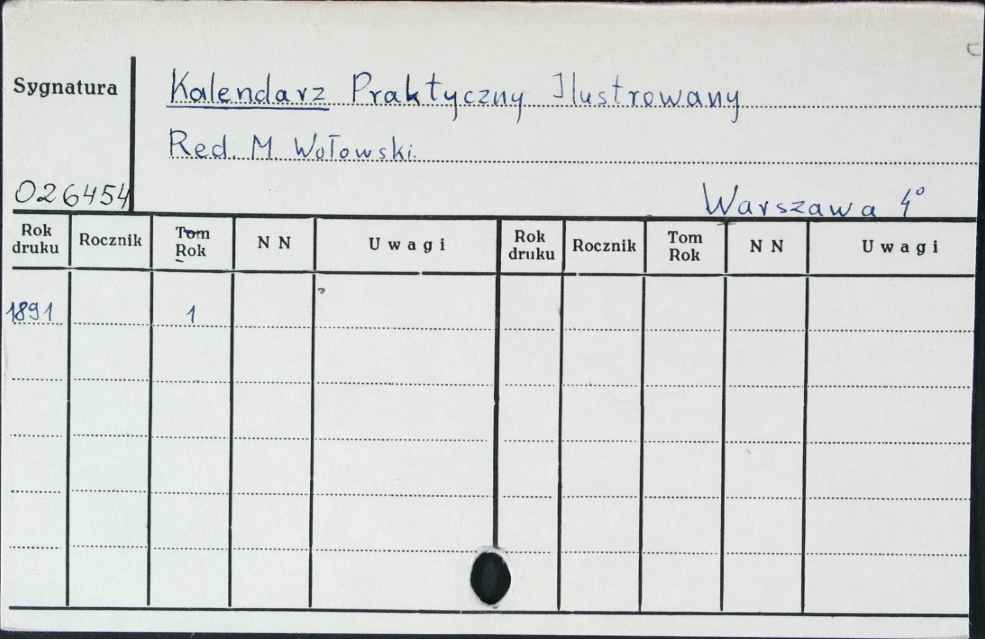 Sygnatura
Kalendarz Praktyczny Ilustrowany
Red. M. Wołowski.
026454
Warszawa 4°
Rok druku Rocznik Tom Rok N N Uwagi Rok druku Rocznik Tom Rok N N Uwagi
1891 1